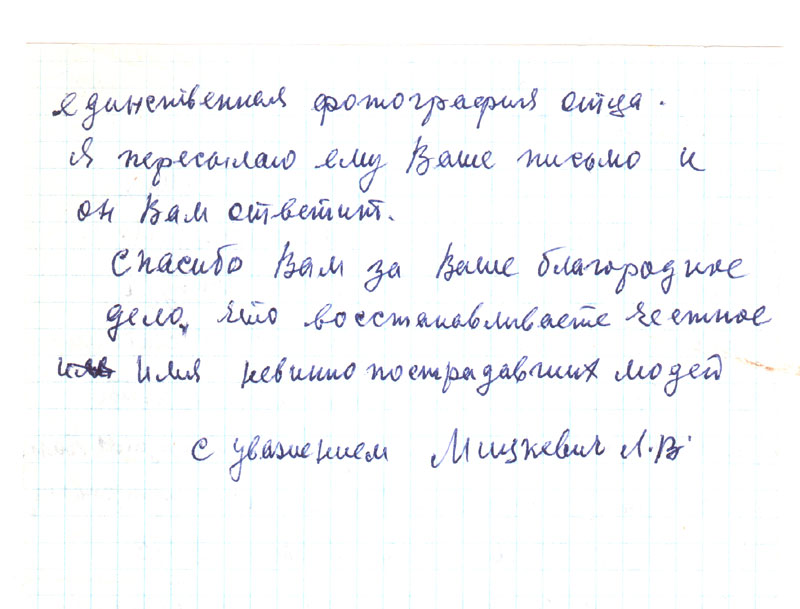 единственная фотография отца.
Я пересылаю ему Ваше письмо и
он Вам ответит.
Спасибо Вам за Ваше благородное
дело, что восстанавливаете честное
имя невинно пострадавших людей
С уважением Мицкевич Л.В.